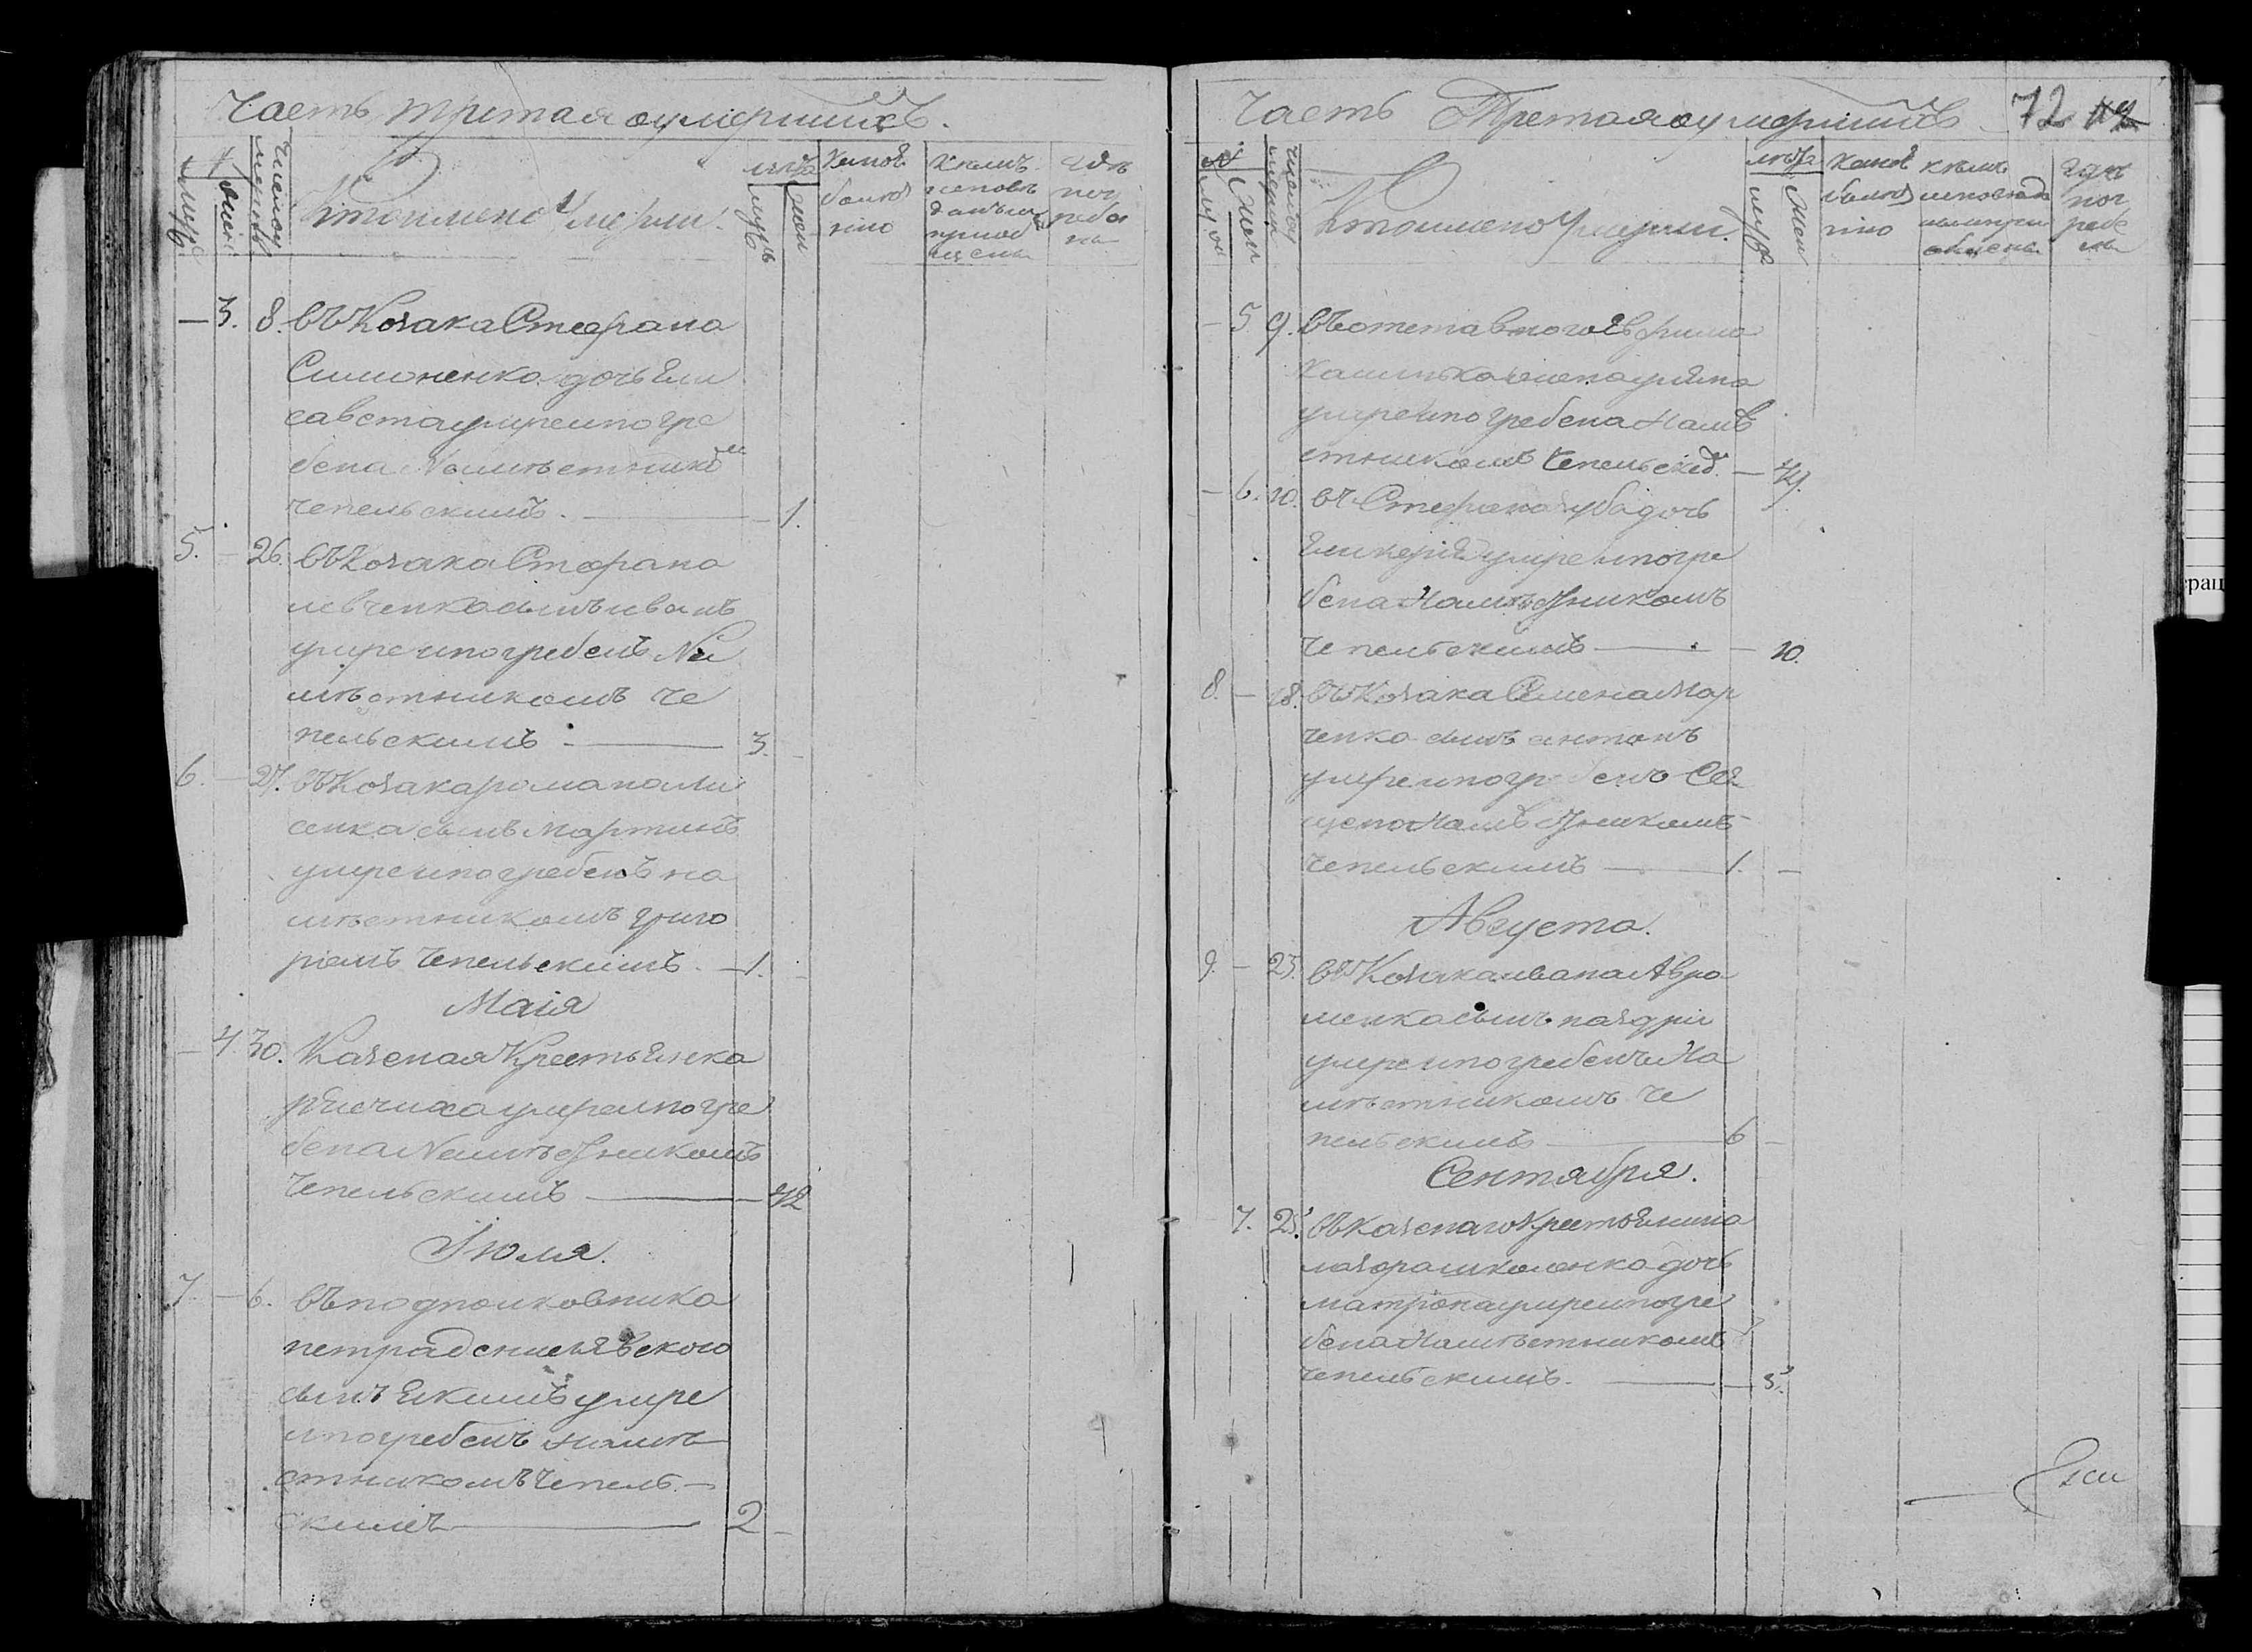 Часть третая оумершихъ.
№
муж
жен
число мертв
Кто имено Умерли.
лѣта
мужъ
жен
Какою болезнію
Кѣмъ исповѣданы и приобщены
Гдѣ погребены
— 3. 8. въ Козака Стефана
Симоненка дочь Ели
савета умре и погре
бена Намѣстником
чепельскимъ. — 1.
5. — 26. въ Козака Стефана
левченка сынъ иванъ
умре и погребенъ На
мѣстникомъ че
пельскимъ — 3. —
6. — 27. въ Козака романа ли
сенка сынъ мартинъ
умре и погребенъ на
мѣстникомъ григо
ріемъ чепельскимъ — 1. —
Маія
— 4. 30. Казеная Крестьянка
умре и погре
бена Намѣстникомъ
Чепельскимъ — 42
Іюля.
7. — 6. въ подполковника
петра
сынъ Якимъ умре
и погребенъ намѣ
стникомъ Чепель
скимъ — 2 —
Часть Третая оумершихъ 72
№
муж
жен
число мертв
Кто имено Умерли.
лѣта
муж
жен
Какою болезнію
кѣмъ исповѣданы и приобщены
Гдѣ погребены
— 5. 9. въ отставного Евфима
умре и погребена Намѣ
стникомъ Чепельским — 49.
— 6. 10. въ Стефана зуба дочь
Гликерія умре и погре
бена Намѣстникомъ
Чепельскимъ — 10.
8. — 18. въ Козака Семена Мар
ченка сынъ антонъ
умре и погребенъ Свя
щено Намѣстникомъ
Чепельскимъ — 1. —
Августа.
9. — 23. въ Козака ивана Авра
менка сынъ
умре и погребенъ На
мѣстникомъ Че
пельскимъ — 6 —
Сентября.
7. 25. въ Казенаго Крестьянина
назара школенка дочь
матрона умре и погре
бена Намѣстникомъ
чепельскимъ. — 3.